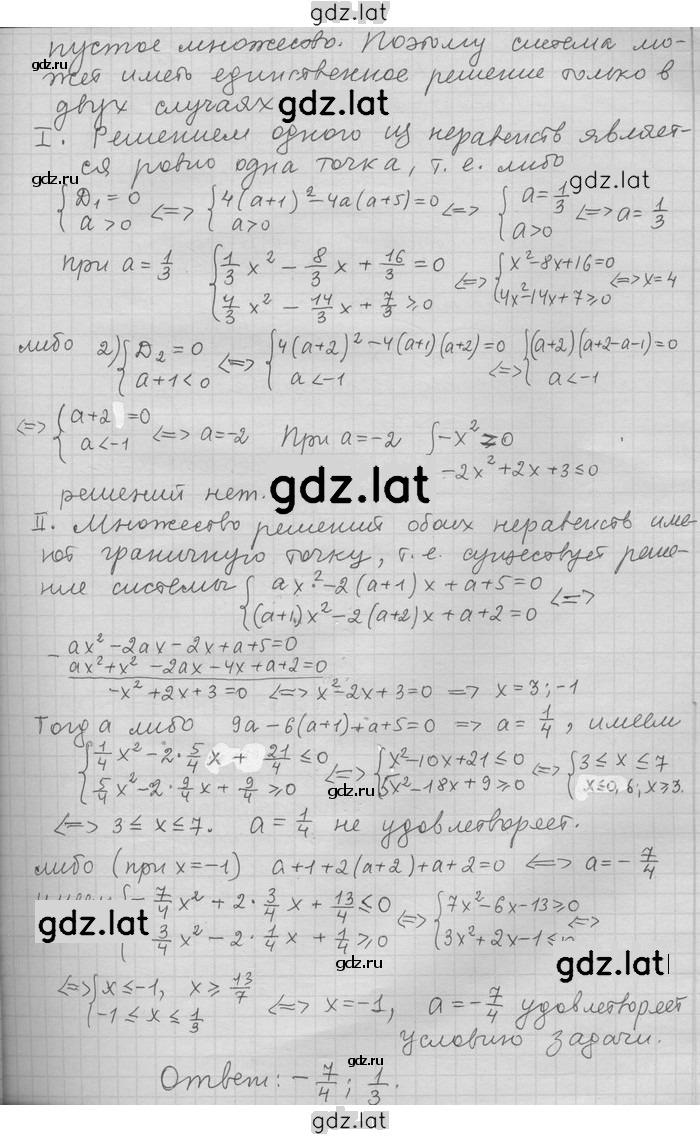 gdz.lat
пустое множество. Поэтому система мо-
gdz.lat
жет иметь единственное решение только в
двух случаях
gdz.lat
I. Решением одного из неравенств являет-
ся ровно одна точка, т. е. либо
gdz.lat
{ D₁ = 0 <=> { 4(a+1)² - 4a(a+5) = 0 <=> { a = 1/3 <=> a = 1/3
a > 0 a > 0 a > 0
при a = 1/3 { 1/3 x² - 8/3 x + 16/3 = 0 <=> { x² - 8x + 16 = 0 <=> x = 4
4/3 x² - 14/3 x + 7/3 ≥ 0 4x² - 14x + 7 ≥ 0
либо 2) { D₂ = 0 <=> { 4(a+2)² - 4(a+1)(a+2) = 0 <=> { (a+2)(a+2-a-1) = 0
a+1 < 0 a < -1 a < -1
<=> { a+2 = 0 <=> a = -2 При a = -2 { -x² ≥ 0
a < -1 -2x² + 2x + 3 ≤ 0
решений нет.
gdz.lat
II. Множество решений обоих неравенств име-
ют граничную точку, т. е. существует реше-
ние системы { ax² - 2(a+1)x + a+5 = 0 <=>
(a+1)x² - 2(a+2)x + a+2 = 0
- ax² - 2ax - 2x + a+5 = 0
ax² + x² - 2ax - 4x + a+2 = 0
-x² + 2x + 3 = 0 <=> x² - 2x + 3 = 0 => x = 3; -1
Тогда либо 9a - 6(a+1) + a+5 = 0 => a = 1/4, имеем
{ 1/4 x² - 2 · 5/4 x + 21/4 ≤ 0 <=> { x² - 10x + 21 ≤ 0 <=> { 3 ≤ x ≤ 7
5/4 x² - 2 · 9/4 x + 9/4 ≥ 0 5x² - 18x + 9 ≥ 0 x ≤ 0,6; x ≥ 3.
<=> 3 ≤ x ≤ 7. a = 1/4 не удовлетворяет.
либо (при x = -1) a+1+2(a+2)+a+2 = 0 <=> a = -7/4
{ -7/4 x² + 2 · 3/4 x + 13/4 ≤ 0 <=> { 7x² - 6x - 13 ≥ 0 <=>
gdz.lat
3/4 x² - 2 · 1/4 x + 1/4 ≥ 0 3x² + 2x - 1 ≤
gdz.lat
<=> { x ≤ -1, x ≥ 13/7 <=> x = -1, a = -7/4 удовлетворяет
-1 ≤ x ≤ 1/3 условию задачи.
gdz.lat
Ответ: -7/4; 1/3.
gdz.lat